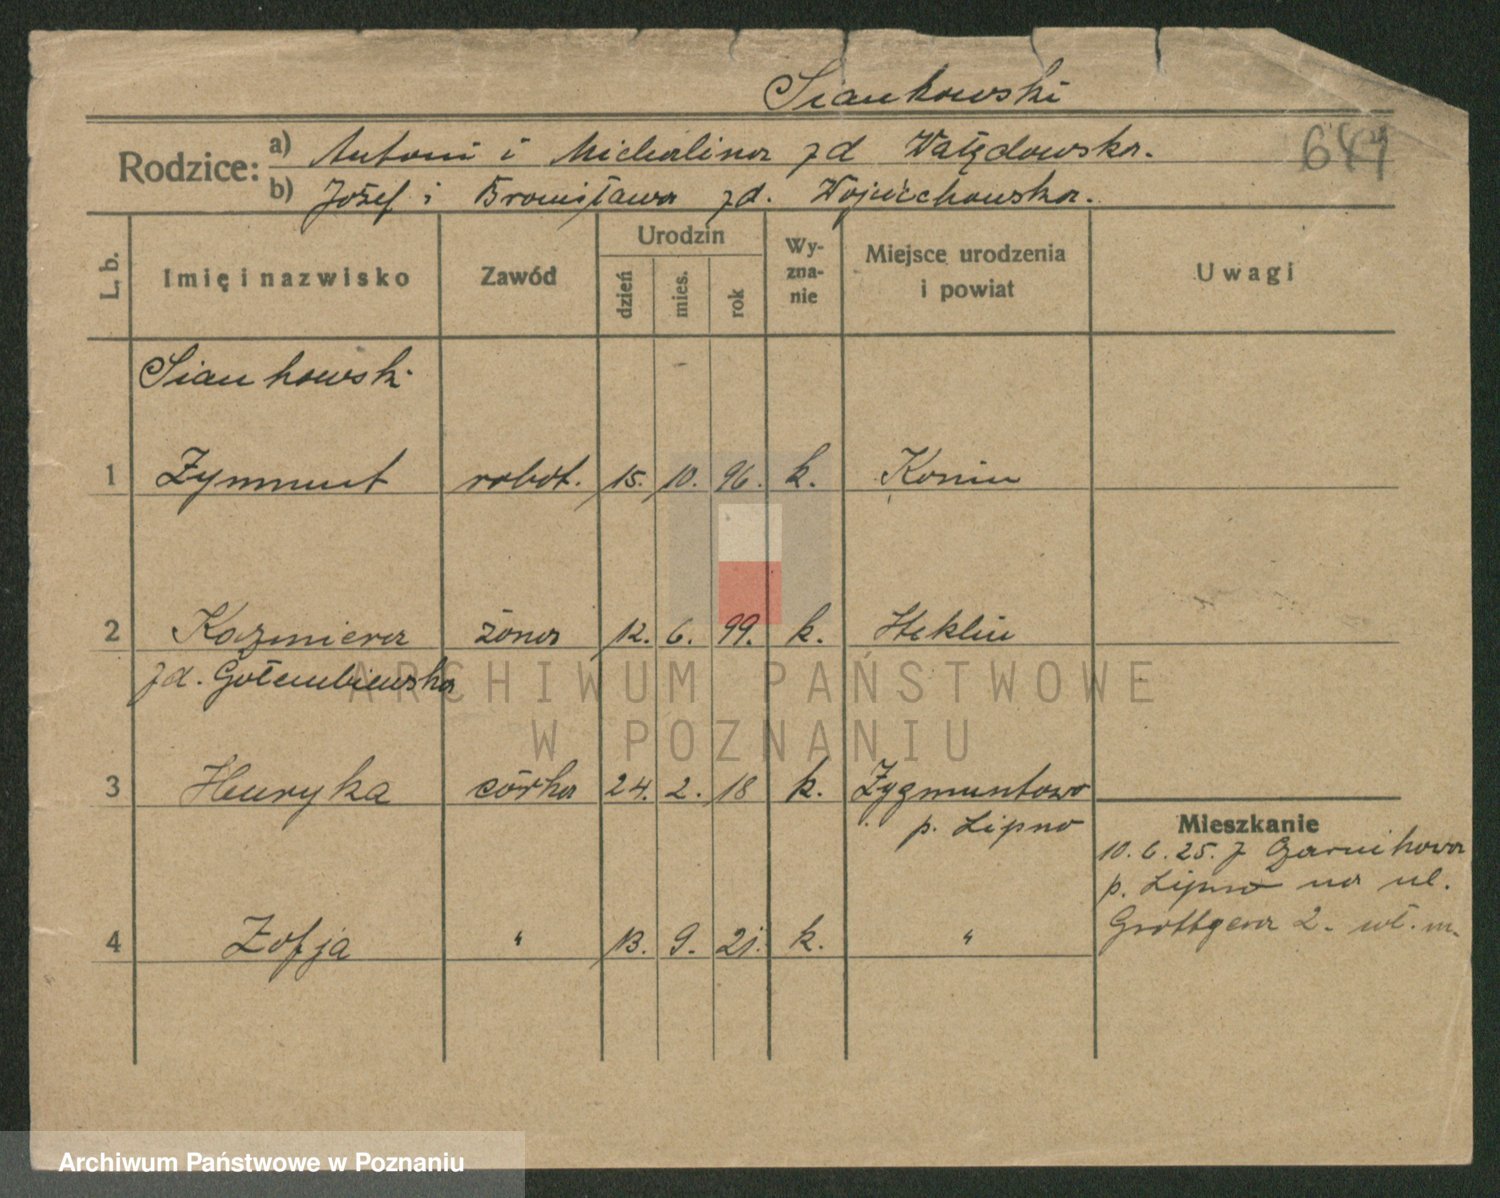 Siankowski
Rodzice:
a) Antoni i Michalina zd Wałędowska.
b) Józef i Bronisława zd. Wojciechowska.
L. b.
Imię i nazwisko
Zawód
Urodzin
dzień
mies.
rok
Wy-
zna-
nie
Miejsce urodzenia
i powiat
Uwagi
Siankowski
1 Zymmunt robot. 15. 10. 96. k. Konin
2 Kazmiera żona 12. 6. 99. k.
zd. Gołembiewska
3 Henryka córka 24. 2. 18 k. Zygmuntowo
p. Lipno
Mieszkanie
10. 6. 25. z Czarnikowa
p. Lipno na ul.
Grottgera 2. wł. m.
4 Zofja " 13. 9. 21. k. "
ARCHIWUM PAŃSTWOWE
W POZNANIU
Archiwum Państwowe w Poznaniu